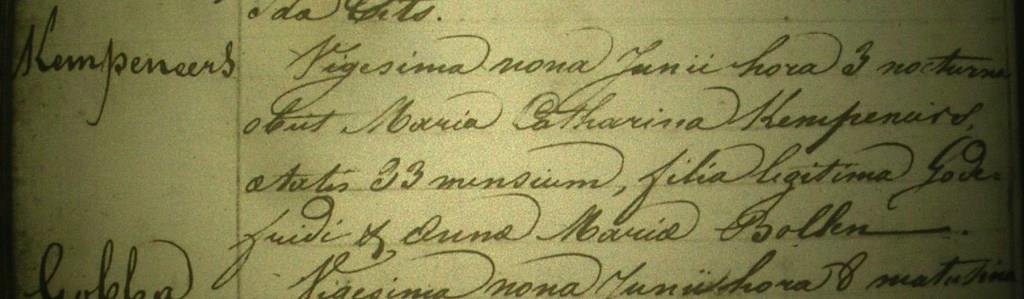 Ida Sels.
Kempeneers Vigesima nona Junii hora 3 nocturna
obiit Maria Catharina Kempeneers,
ætatis 33 mensium, filia legitima Gode-
fridi & Annæ Mariæ Bollen.
Vigesima nona Junii hora 8 matutina